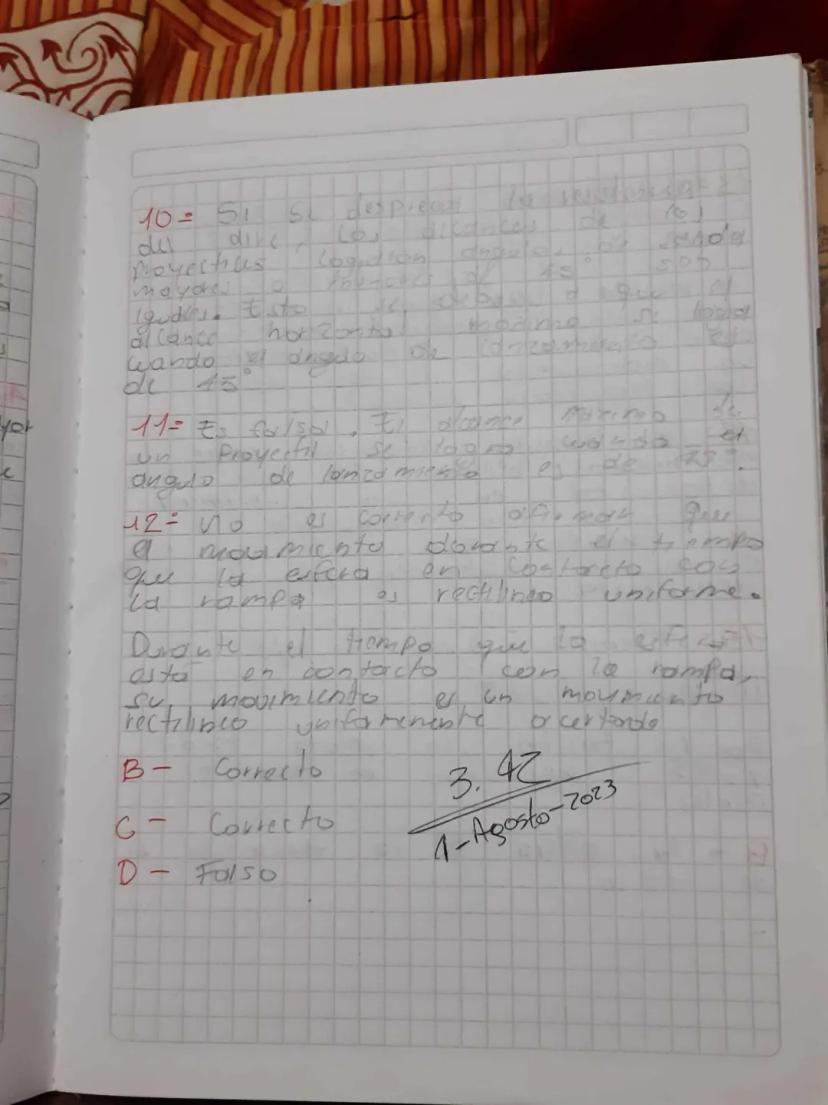 10= Si Si desprecia la resistencia
del aire, los alcances de los
proyectiles angulos
mayores o menores de 45° son
iguales. Esto se a que el
alcance horizontal maximo se logra
cuando el angulo de lanzamiento es
de 45°
11= Es falso. El alcance maximo de
un Proyectil se logra cuando el
angulo de lanzamiento es de
12= No es correcto afirmar que
el movimiento durante el tiempo
que la esfera en contacto con
la rampa es rectilineo uniforme.
Durante el tiempo que la esfera
está en contacto con la rampa,
su movimiento es un movimiento
rectilineo
B- Correcto
C- Correcto
D- Falso
3.42
1-Agosto-2023
yor